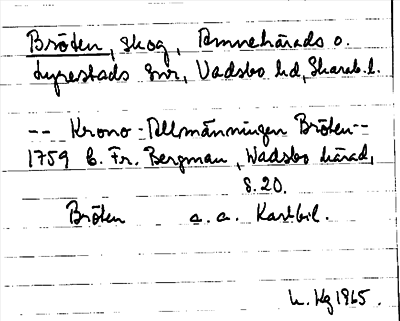 Bröten, skog, Amnehärads o.
Lyrestads snr, Vadsbo hd, Skarab. l.
-- Krono-Allmänningen Bröten --
1759 C. Fr. Bergman, Wadsbo härad,
s. 20.
Bröten a. a. Kartbil.
Kg 1965.